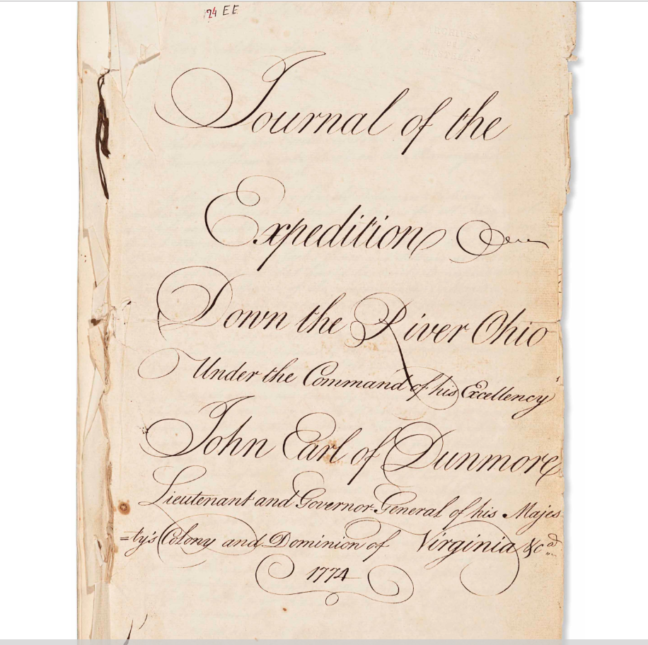 24 EE
Journal of the
Expedition
Down the River Ohio
Under the Command of his Excellency
John Earl of Dunmore
Lieutenant and Governor General of his Majes
=ty's Colony and Dominion of Virginia &c.
1774